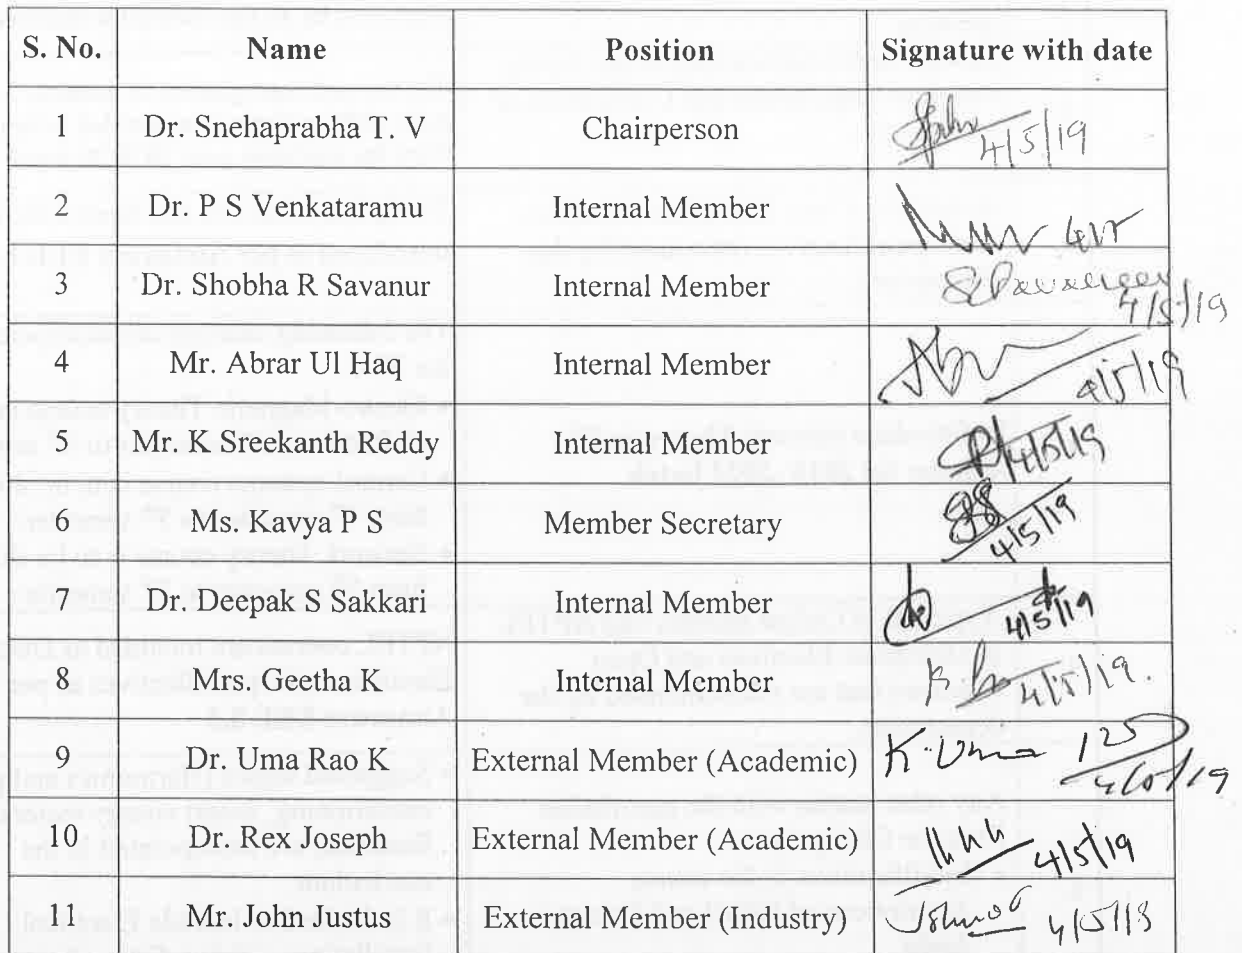 S. No. Name Position Signature with date
1 Dr. Snehaprabha T. V Chairperson 4/5/19
2 Dr. P S Venkataramu Internal Member
3 Dr. Shobha R Savanur Internal Member 4/5/19
4 Mr. Abrar Ul Haq Internal Member 4/5/19
5 Mr. K Sreekanth Reddy Internal Member 4/5/19
6 Ms. Kavya P S Member Secretary 4/5/19
7 Dr. Deepak S Sakkari Internal Member 4/5/19
8 Mrs. Geetha K Internal Member 4/5/19.
9 Dr. Uma Rao K External Member (Academic) K. Uma 4/05/19
10 Dr. Rex Joseph External Member (Academic) 4/5/19
11 Mr. John Justus External Member (Industry)